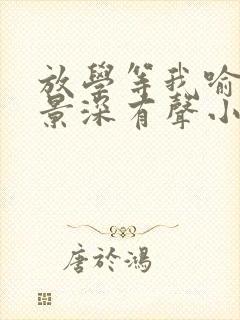 放學等我喻
景深有聲小
唐於鴻